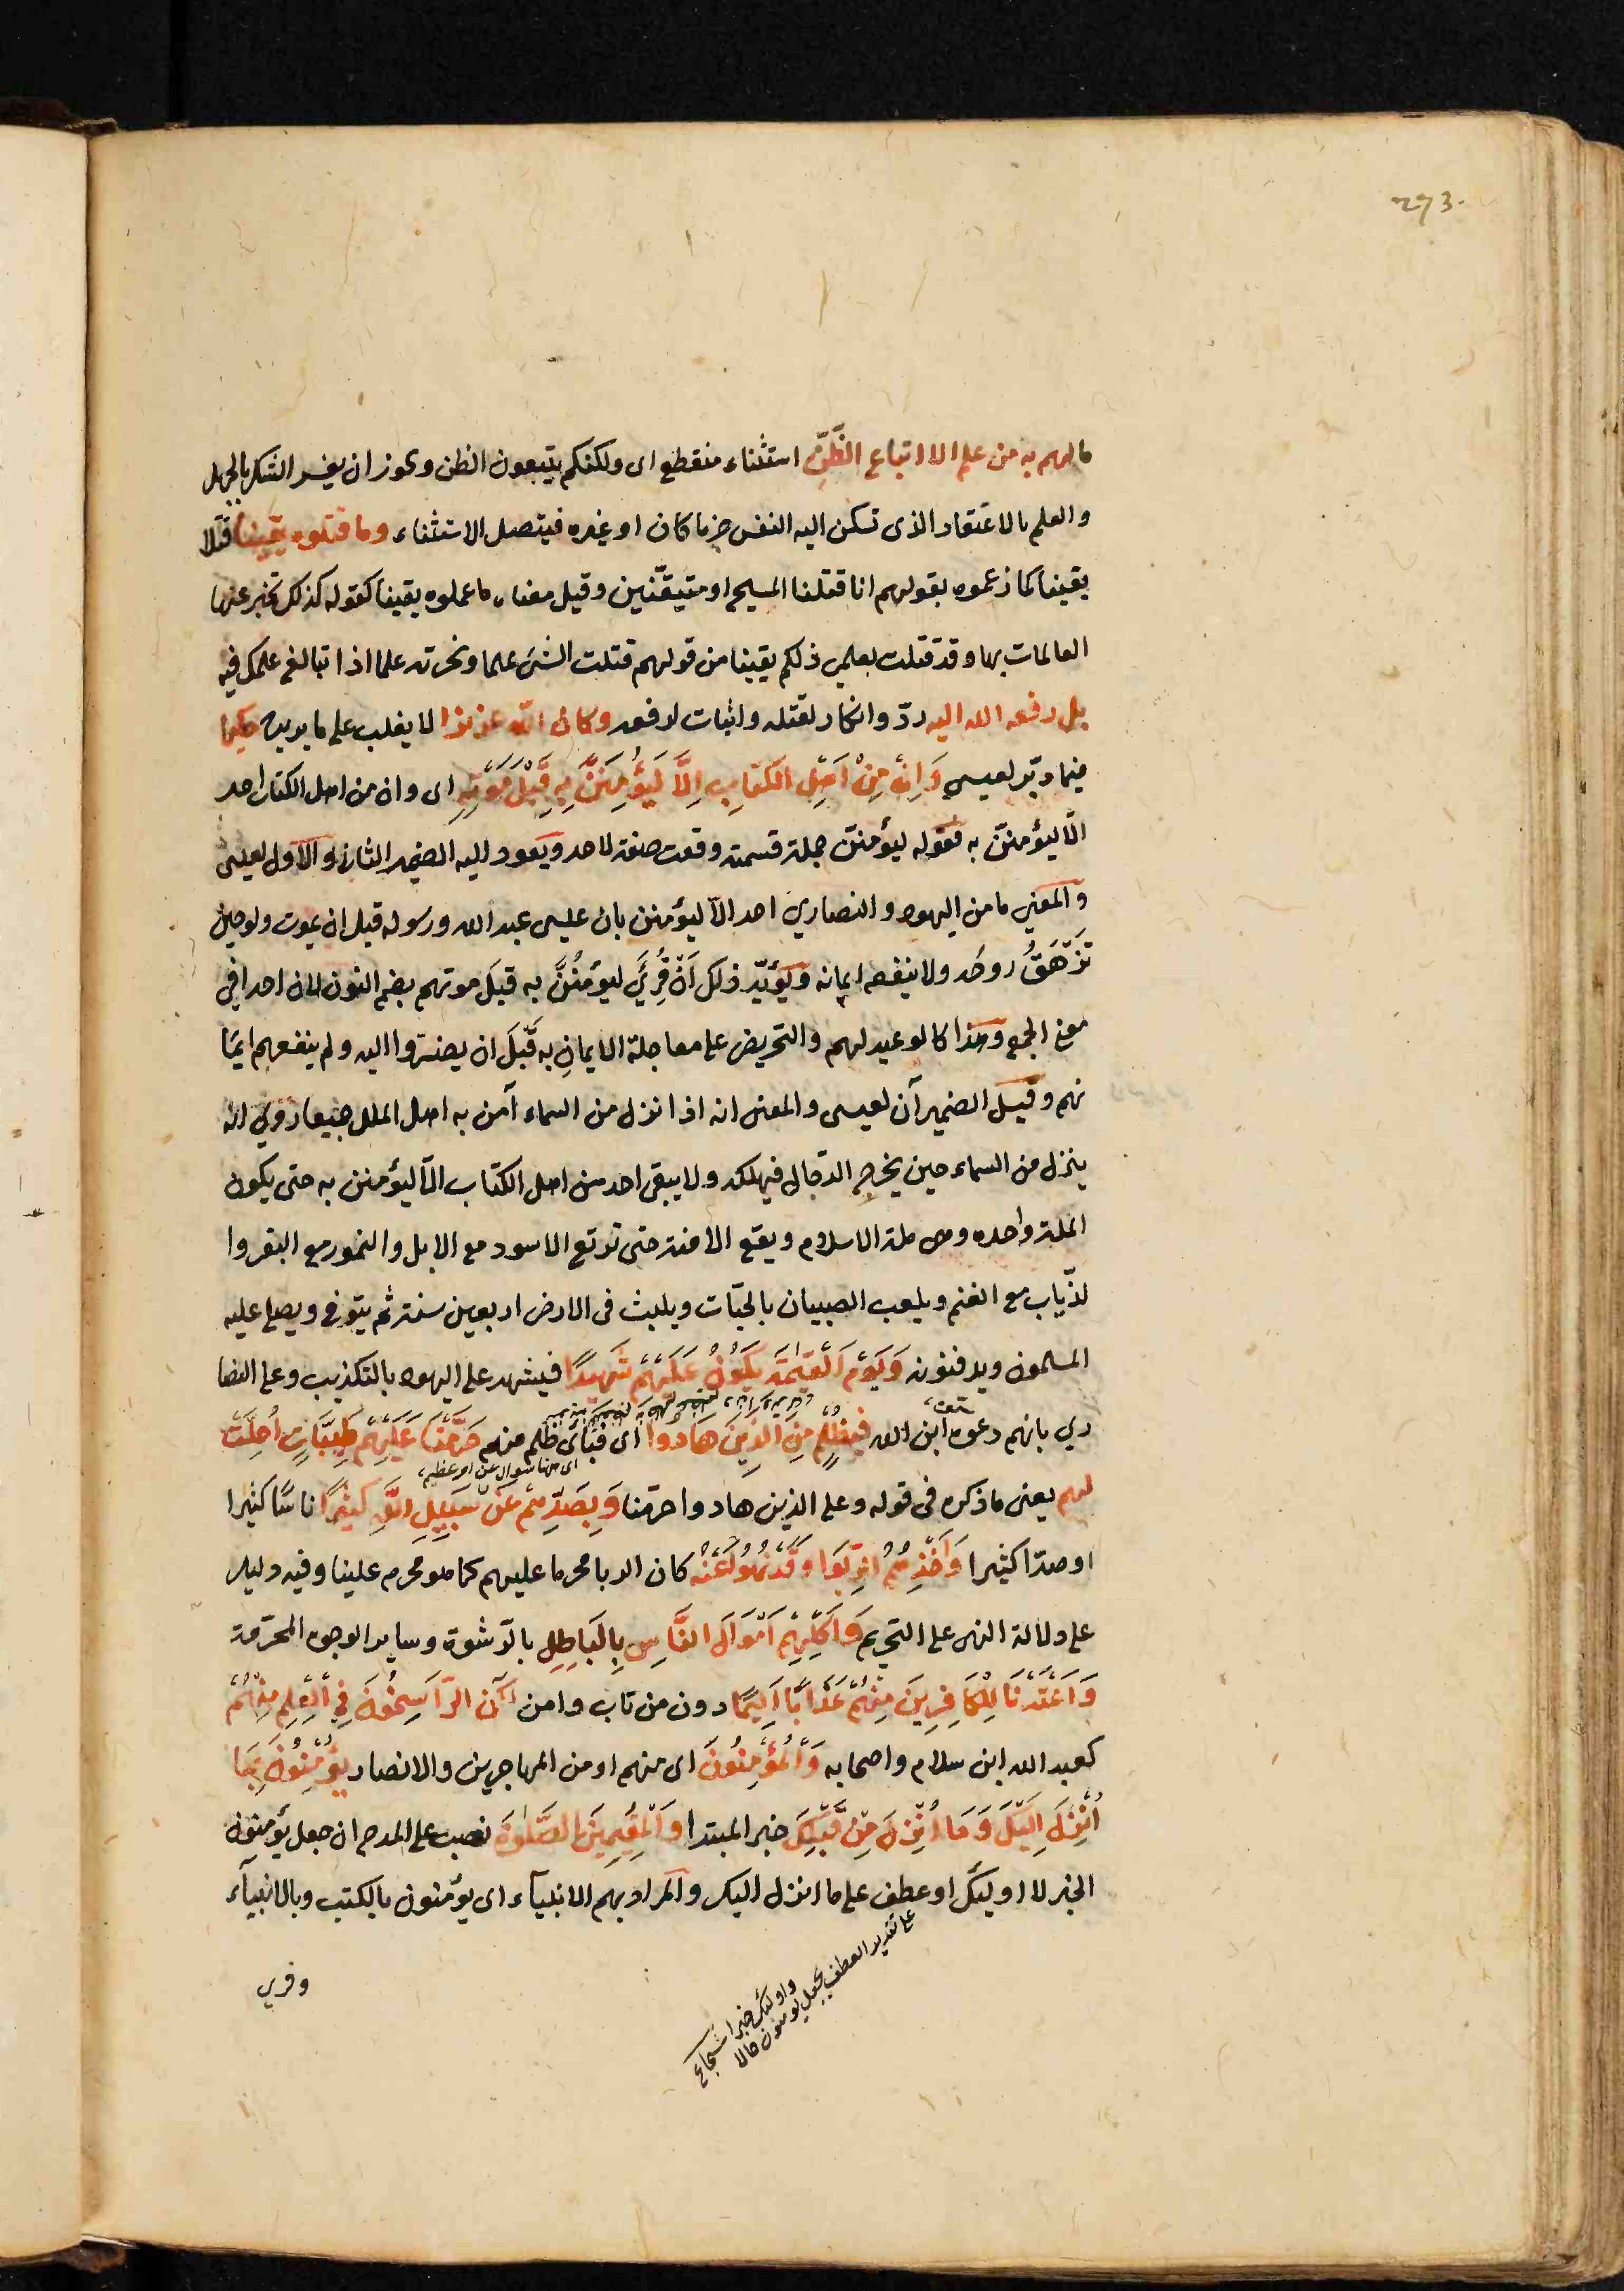 273.
ما لهم به من علم الا اتباع الظَّنِّ استثناء منقطع اى ولكنكم يتبعون الظن ويجوز ان يفسر الشك بالجهل
والعلم بالاعتقاد الذى تسكن اليه النفس جزما كان او غيره فيتصل الاستثناء وما قتلوه يقينا قتلا
يقينا كما زعموه بقولهم انا قتلنا المسيح او متيقّنين وقيل معناه ما علموه يقينا كقوله كذلك تخبر عنها
العالمات بها وقد قتلت بعلمي ذلكم يقينا من قولهم قتلت الشئ علما ونحرته علما اذا تبالغ علمك فيه
بل رفعه الله اليه ردّ وانكار لقتله واثبات لرفعه وكان الله عزيزا لا يغلب على ما يريده حكيما
فيما دبّر لعيسى وَاِنْ مِنْ اَهْلِ الكتَابِ اِلَّا لَيُؤْمِنَنَّ بِهِ قَبْلَ مَوْتِهِ اى وان من اهل الكتاب احد
الّا ليؤمننّ به فقوله ليؤمننّ جملة قسمية وقعت صفة لاحد ويعود اليه الضمير الثانى والاول لعيسى
والمعنى ما من اليهود والنصارى احد الّا ليؤمنن بان عيسى عبد الله ورسوله قبل ان يموت ولو حين
تزهَقُ روحُه ولا ينفعه ايمانه ويؤيّد ذلك اَنْ قُرِئَ ليؤمنُنَّ به قبلَ موتهم بضم النون لان احدا فى
معنى الجمع وهذا كالوعيد لهم والتحريض على معاجلة الايمانِ به قَبْلَ ان يضطروا اليه ولم ينفعهم ايما
نهم وقيل الضميرآن لعيسى والمعنى انه اذا نزل من السماء آمن به اهل الملل جميعا روى انه
ينزل من السماء حين يخرج الدّجال فيهلكه ولا يبقى احد من اهل الكتاب الّا ليؤمنن به حتى يكون
الملة واحده وهى ملة الاسلام ويقع الامنة حتى ترتع الاسود مع الابل والنمور مع البقر وا
لذّياب مع الغنم ويلعب الصبيان بالحيّات ويلبث فى الارض اربعين سنة ثم يتوفى ويصلى عليه
المسلمون ويدفنونه وَيَوْمَ الْقِيمَةِ يَكُونُ عَلَيْهِمْ شَهِيدًا فيشهد على اليهود بالتكذيب وعلى النصا
رى بانهم دعوه ابن الله فبِظُلْمٍ مِنَ الَّذِينَ هَادوا اى فبأى ظلم منهم حَرَّمْنَا عَلَيْهِمْ طَيِّبَاتٍ اُحِلَّتْ
لهم يعنى ما ذكره فى قوله وعلى الذين هادوا حرّمنا وَبِصَدِّهِمْ عَنْ سَبِيلِ اللَّهِ كَثِيرًا ناسًا كثيرا
او صدّا كثيرا وَاَخْذِهِمُ الرِّبَوا وَقَدْ نُهُوا عَنْهُ كان الربا محرما عليهم كما هو محرم علينا وفيه دليل
على دلالة النهى على التحريم وَاَكْلِهِمْ اَمْوَالَ النَّاسِ بِالْبَاطِلِ بالرّشوة وساير الوجوه المحرّمة
وَاَعْتَدْنَا لِلْكَافِرِينَ مِنْهُمْ عَذَابًا اَلِيمًا دون من تاب وامن لكن الرَّاسِخُونَ فِي الْعِلْمِ مِنْهُمْ
كعبد الله ابن سلام واصحابه وَالْمُؤْمِنُونَ اى منهم او من المهاجرين والانصار يُؤْمِنُونَ بِمَا
اُنْزِلَ اِلَيْكَ وَمَا اُنْزِلَ مِنْ قَبْلِكَ خبر المبتدا وَالْمُقِيمِينَ الصَّلوةَ نصب على المدح ان جعل يؤمنون
الخبر لا اوليك او عطف على ما انزل اليك والمراد بهم الانبيآء اى يؤمنون بالكتب وبالانبيآء
على تقدير العطف يجعل يومنون حالا
واوليك خبرا
وقرى